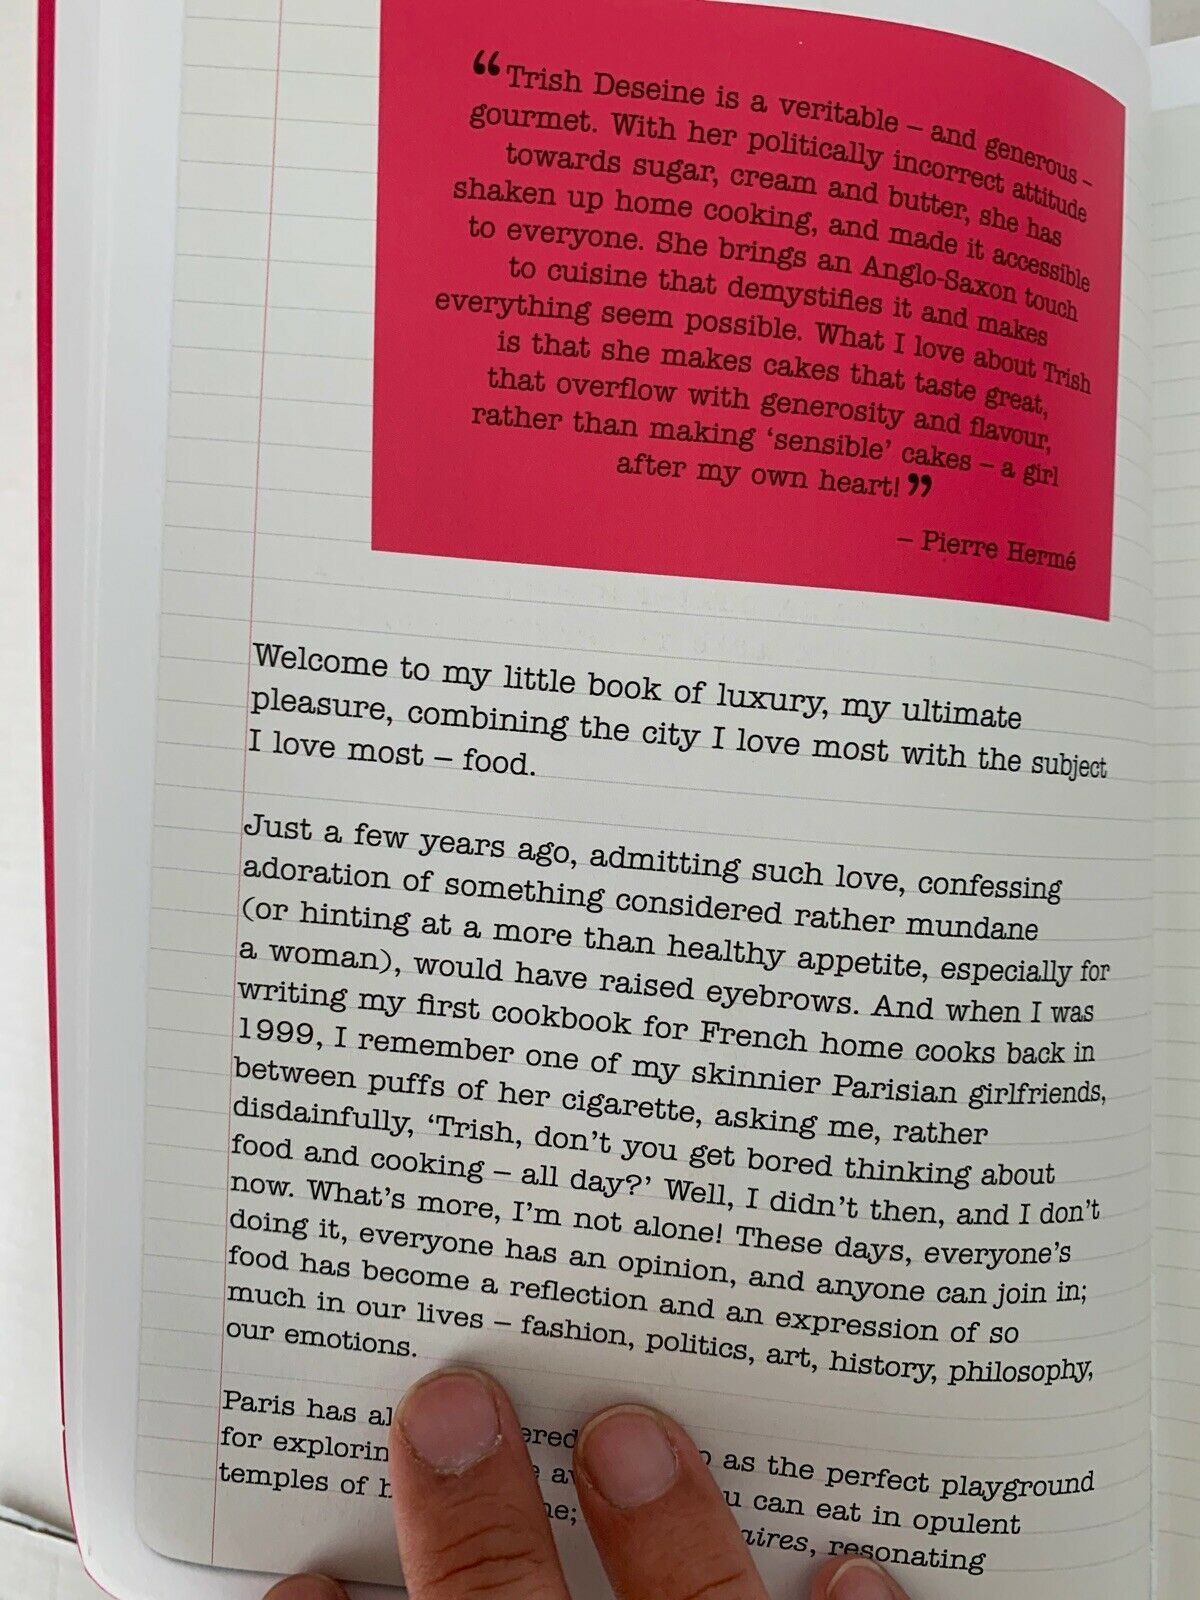 “Trish Deseine is a veritable – and generous –
gourmet. With her politically incorrect attitude
towards sugar, cream and butter, she has
shaken up home cooking, and made it accessible
to everyone. She brings an Anglo-Saxon touch
to cuisine that demystifies it and makes
everything seem possible. What I love about Trish
is that she makes cakes that taste great,
that overflow with generosity and flavour,
rather than making ‘sensible’ cakes – a girl
after my own heart!”
– Pierre Hermé
Welcome to my little book of luxury, my ultimate
pleasure, combining the city I love most with the subject
I love most – food.
Just a few years ago, admitting such love, confessing
adoration of something considered rather mundane
(or hinting at a more than healthy appetite, especially for
a woman), would have raised eyebrows. And when I was
writing my first cookbook for French home cooks back in
1999, I remember one of my skinnier Parisian girlfriends,
between puffs of her cigarette, asking me, rather
disdainfully, ‘Trish, don’t you get bored thinking about
food and cooking – all day?’ Well, I didn’t then, and I don’t
now. What’s more, I’m not alone! These days, everyone’s
doing it, everyone has an opinion, and anyone can join in;
food has become a reflection and an expression of so
much in our lives – fashion, politics, art, history, philosophy,
our emotions.
Paris has as the perfect playground
for can eat in opulent
temples of resonating